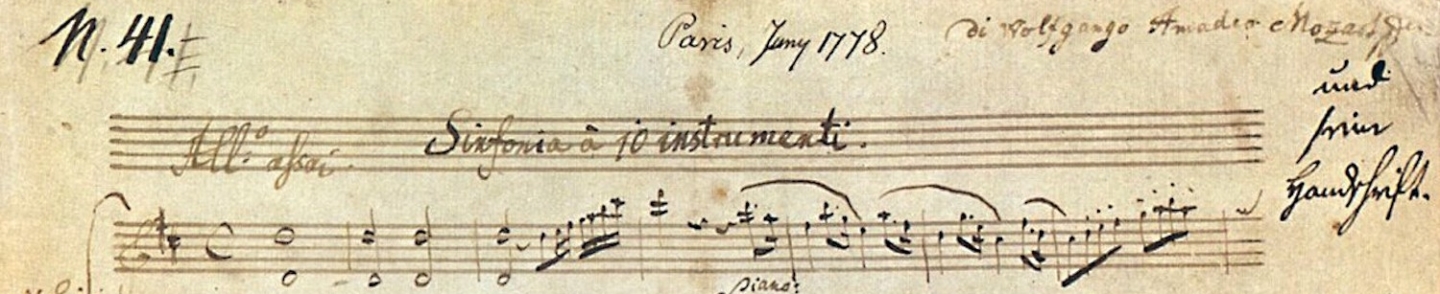 N. 41. Paris, Juny 1778. di Wolfgango Amadeo Mozart
und
seine
Handschrift.
Sinfonia à 10 instrumenti.
All:º assai.
piano: